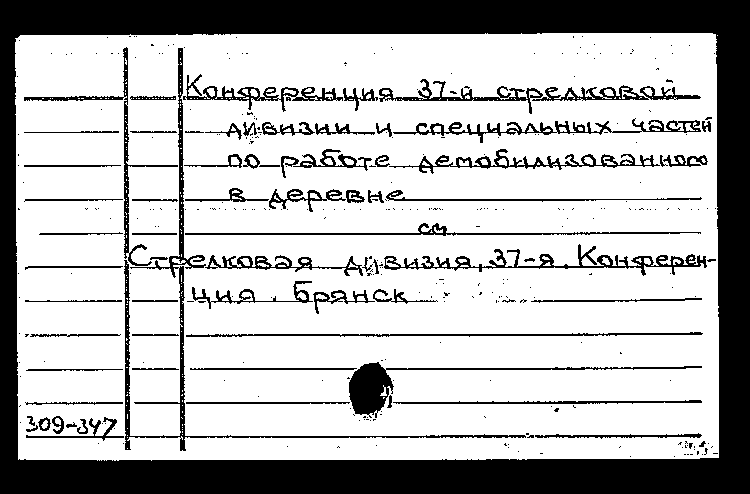 Конференция 37-й стрелковой
дивизии и специальных частей
по работе демобилизованного
в деревне
см
Стрелковая дивизия, 37-я. Конферен-
ция. Брянск
309-347